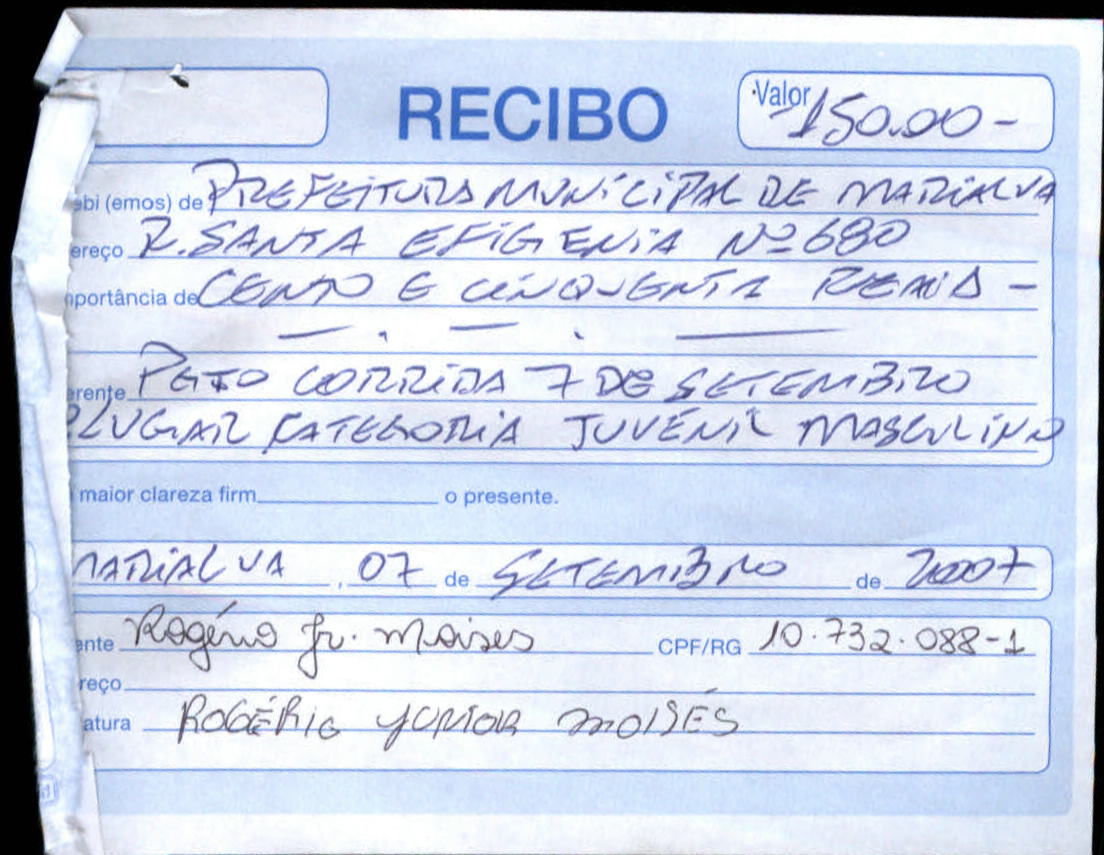 RECIBO
Valor 150.00-
ebi (emos) de PREFEITURA MUNICIPAL DE MARIALVA
ereço R. SANTA EFIGENIA Nº 680
portância de CENTO E CINQUENTA REAIS -
erente PETO CORRIDA 7 DE SETEMBRO
LUGAR CATEGORIA JUVENIL MASCULINO
maior clareza firm o presente.
MARIALVA, 07 de SETEMBRO de 2007
ente Rogério Jr. Moises CPF/RG 10.732.088-1
reço
atura ROGÉRIO JUNIOR MOISÉS